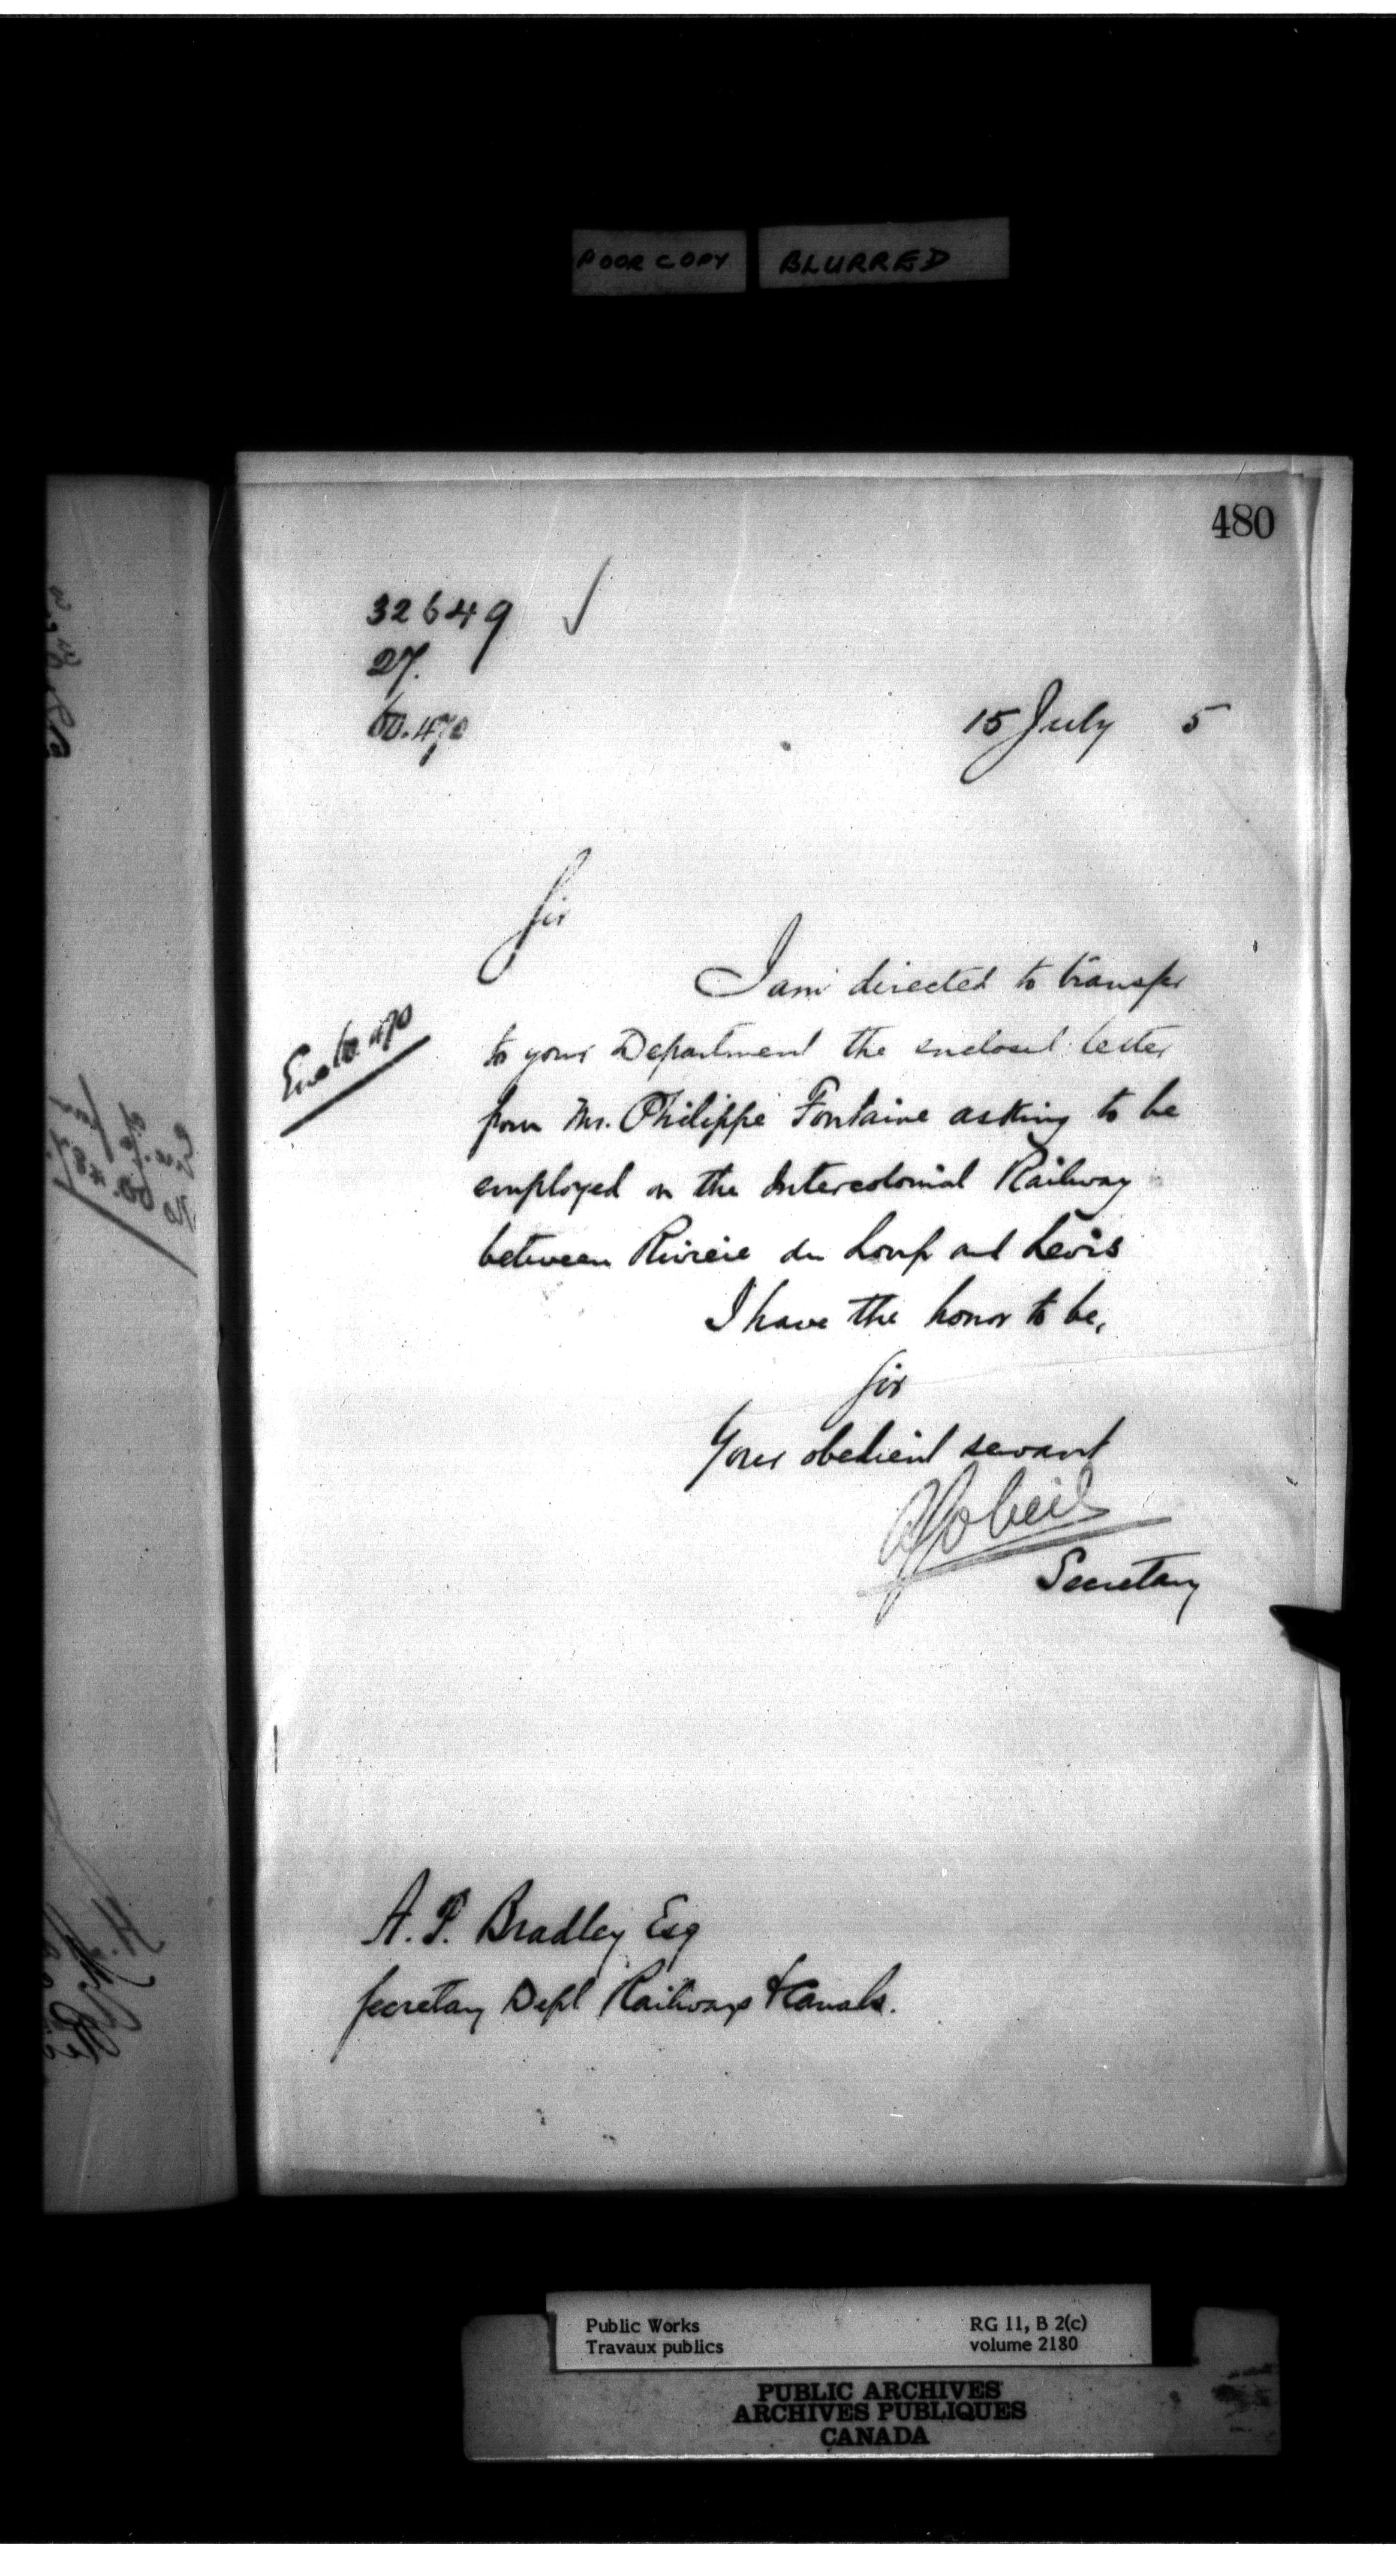 POOR COPY BLURRED
480
32649 ✓
27.
60.470
15 July 5
Sir
I am directed to transfer
to your Department the enclosed letter
from Mr. Philippe Fontaine asking to be
employed on the Intercolonial Railway
between Riviere du Loup and Levis
I have the honor to be,
Sir
Your obedient servant
AGobeil
Secretary
Enc 60.470
A. P. Bradley Esq
Secretary Dept Railways & Canals.
Public Works
Travaux publics
RG 11, B 2(c)
volume 2180
PUBLIC ARCHIVES
ARCHIVES PUBLIQUES
CANADA